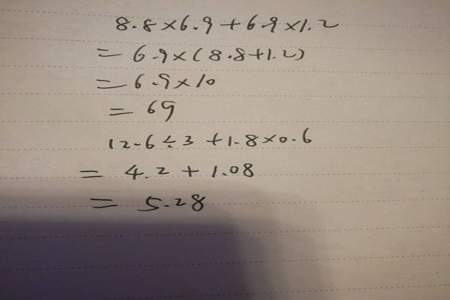 8.8×6.9+6.9×1.2
=6.9×(8.8+1.2)
=6.9×10
=69
12.6÷3+1.8×0.6
=4.2+1.08
=5.28